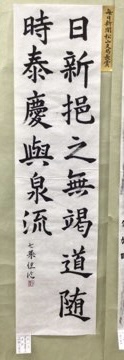 日新挹之無竭道随
時泰慶與泉流